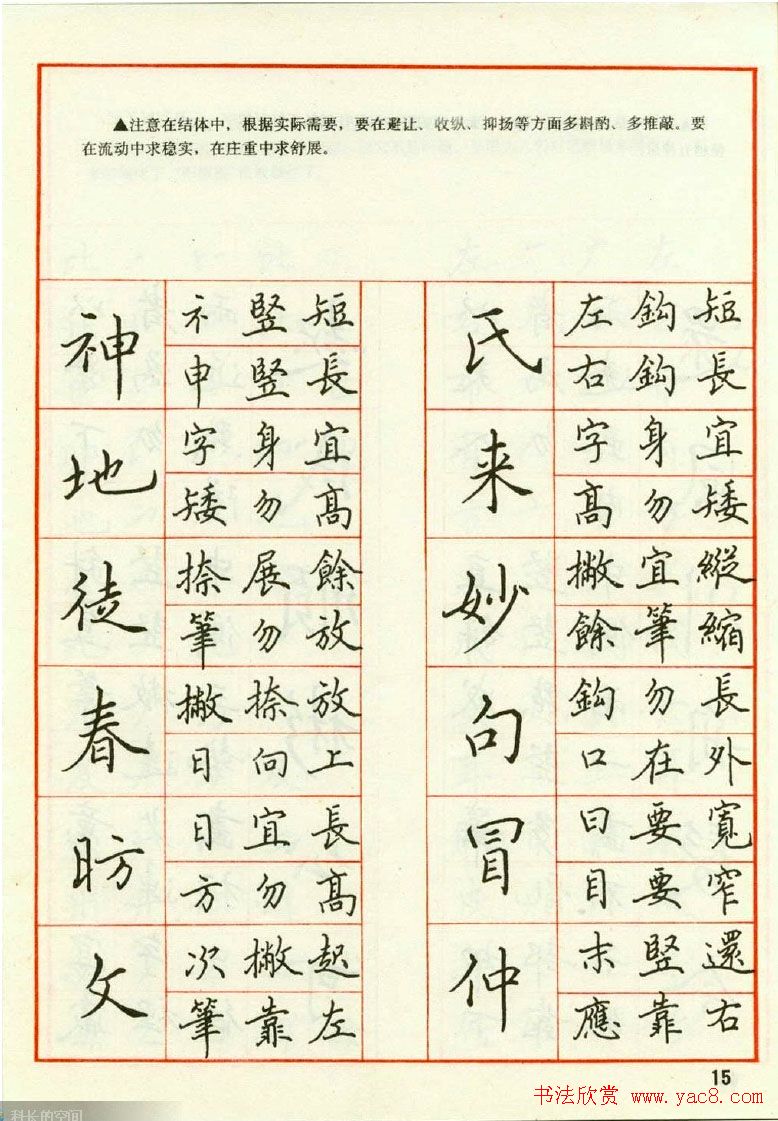 ▲注意在结体中，根据实际需要，要在避让、收纵、抑扬等方面多斟酌、多推敲。要
在流动中求稳实，在庄重中求舒展。
神
礻竖短
申竖長
地
字身宜
矮勿高
徒
捺展餘
筆勿放
春
撇捺放
日向上
昉
日宜長
方勿高
文
次撇起
筆靠左
氏
左鈎短
右鈎長
来
字身宜
高勿矮
妙
撇宜縱
餘筆縮
句
鈎勿長
口在外
冒
曰要寬
目要窄
仲
末竪還
應靠右
15
书法欣赏 www.yac8.com
科长的空间